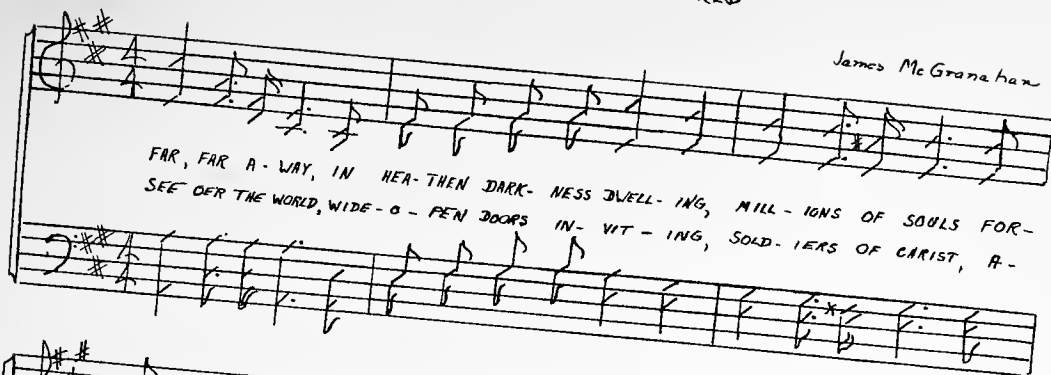 James McGranahan
4
4
FAR, FAR A-WAY, IN HEA-THEN DARK-NESS DWELL-ING, MILL-IONS OF SOULS FOR-
SEE OER THE WORLD, WIDE-O-PEN DOORS IN-VIT-ING, SOLD-IERS OF CARIST, A-
4
4